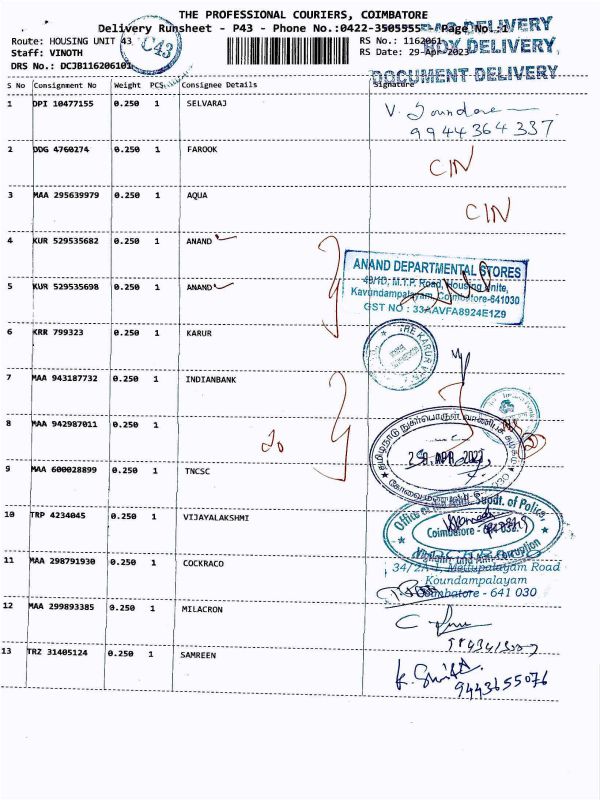 THE PROFESSIONAL COURIERS, COIMBATORE
Delivery Runsheet - P43 - Phone No.:0422-3505555 Page No.:1
Route: HOUSING UNIT 43 RS No.: 1162061
Staff: VINOTH RS Date: 29-Apr-2023
DRS No.: DCJB116206101
C43
DELIVERY
BOX DELIVERY
DOCUMENT DELIVERY
S No Consignment No Weight PCS Consignee Details Signature
1 DPI 10477155 0.250 1 SELVARAJ
9944364337
2 DDG 4760274 0.250 1 FAROOK CIN
3 MAA 295639979 0.250 1 AQUA CIN
4 KUR 529535682 0.250 1 ANAND
5 KUR 529535698 0.250 1 ANAND
ANAND DEPARTMENTAL STORES
49/1D, M.T.P. Road, Housing Unite,
Kavundampalayam, Coimbatore-641030
GST NO : 33AAVFA8924E1Z9
6 KRR 799323 0.250 1 KARUR
THE KARUR
7 MAA 943187732 0.250 1 INDIANBANK
8 MAA 942987011 0.250 1
தமிழ்நாடு நுகர்பொருள் வாணிபக் கழகம்
9 MAA 600028899 0.250 1 TNCSC
10 TRP 4234045 0.250 1 VIJAYALAKSHMI
Office of the Suodt. of Police,
Coimbatore
Vigilance and Anti-Corruption
11 MAA 298791930 0.250 1 COCKRACO
34/2A-1, Road
Koundampalayam
Coimbatore - 641 030
12 MAA 299893385 0.250 1 MILACRON
13 TRZ 31405124 0.250 1 SAMREEN
9443655076